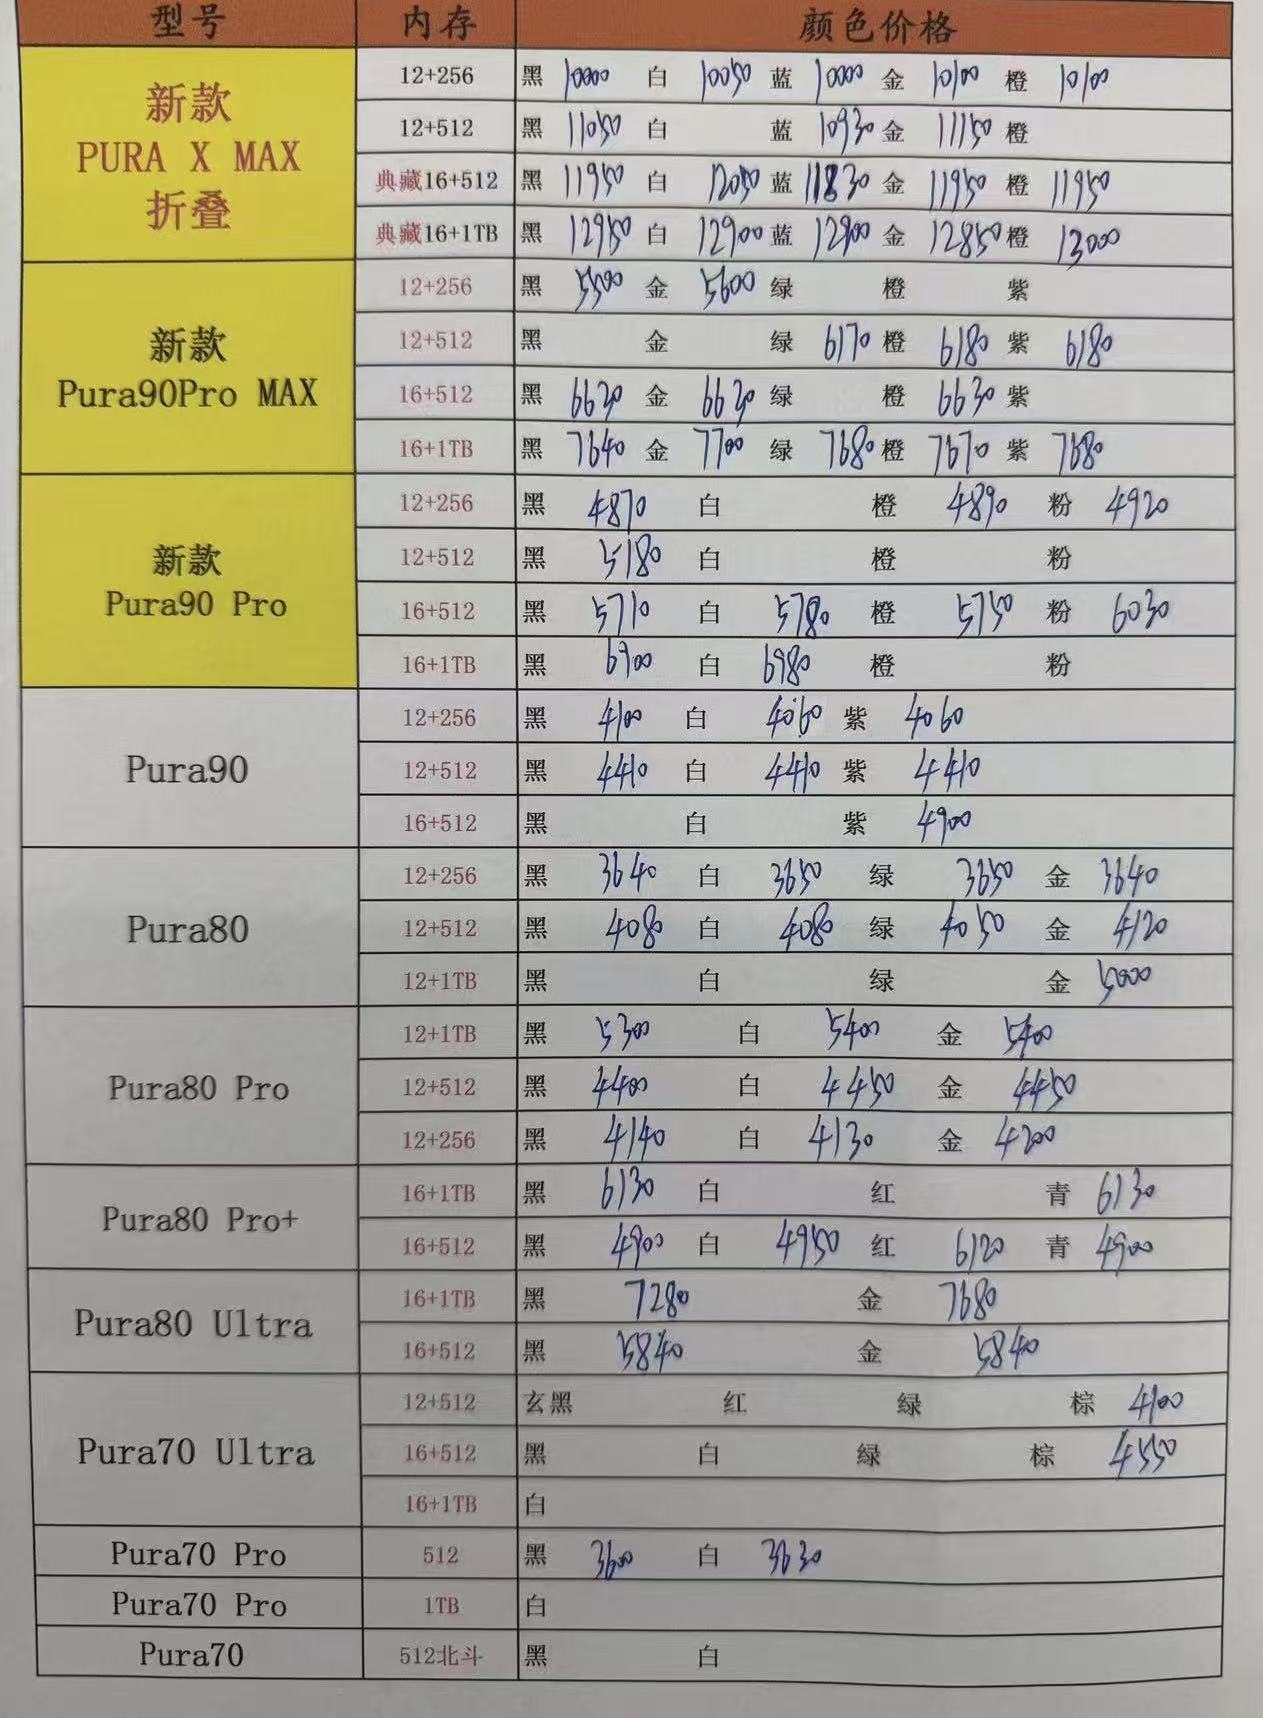 型号 内存 颜色价格
新款 PURA X MAX 折叠
12+256 黑 10000 白 10050 蓝 10000 金 10100 橙 10100
12+512 黑 11050 白 蓝 10930 金 11150 橙
典藏16+512 黑 11950 白 12050 蓝 11830 金 11950 橙 11950
典藏16+1TB 黑 12950 白 12900 蓝 12800 金 12850 橙 13000
新款 Pura90Pro MAX
12+256 黑 5500 金 5600 绿 橙 紫
12+512 黑 金 绿 6170 橙 6180 紫 6180
16+512 黑 6620 金 6620 绿 橙 6630 紫
16+1TB 黑 7640 金 7700 绿 7680 橙 7670 紫 7680
新款 Pura90 Pro
12+256 黑 4870 白 橙 4890 粉 4920
12+512 黑 5180 白 橙 粉
16+512 黑 5710 白 5780 橙 5750 粉 6030
16+1TB 黑 6900 白 6980 橙 粉
Pura90
12+256 黑 4100 白 4060 紫 4060
12+512 黑 4410 白 4410 紫 4410
16+512 黑 白 紫 4900
Pura80
12+256 黑 3640 白 3650 绿 3650 金 3640
12+512 黑 4080 白 4080 绿 4050 金 4120
12+1TB 黑 白 绿 金 5000
Pura80 Pro
12+1TB 黑 5300 白 5400 金 5400
12+512 黑 4400 白 4450 金 4450
12+256 黑 4140 白 4130 金 4200
Pura80 Pro+
16+1TB 黑 6130 白 红 青 6130
16+512 黑 4900 白 4950 红 6120 青 4900
Pura80 Ultra
16+1TB 黑 7280 金 7680
16+512 黑 5840 金 5840
Pura70 Ultra
12+512 玄黑 红 绿 棕 4100
16+512 黑 白 绿 棕 4550
16+1TB 白
Pura70 Pro 512 黑 3600 白 3630
Pura70 Pro 1TB 白
Pura70 512北斗 黑 白